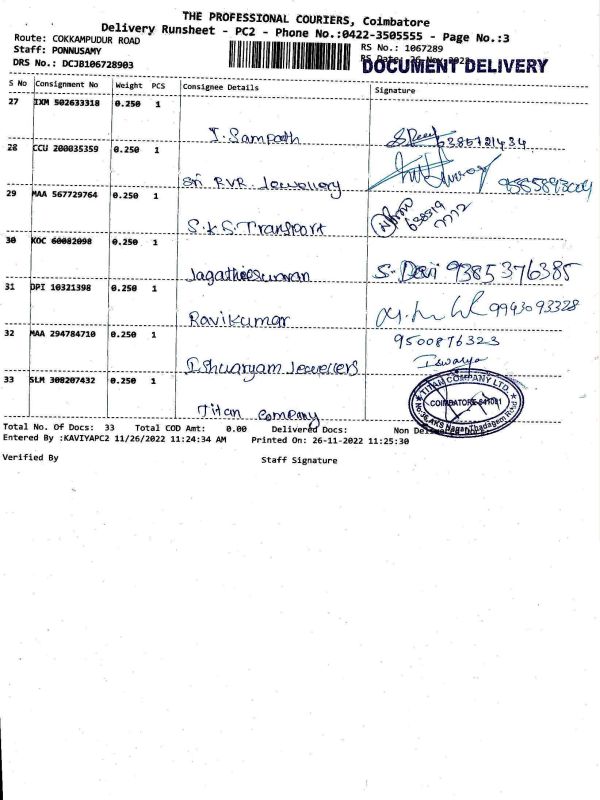 THE PROFESSIONAL COURIERS, Coimbatore
Delivery Runsheet - PC2 - Phone No.:0422-3505555 - Page No.:3
Route: COKKAMPUDUR ROAD
Staff: PONNUSAMY
DRS No.: DCJB106728903
RS No.: 1067289
DOCUMENT DELIVERY
S No Consignment No Weight PCS Consignee Details Signature
27 IXM 502633318 0.250 1
I. Sampath 6385721434
28 CCU 200035359 0.250 1
Sri RVR Jewellery
29 MAA 567729764 0.250 1
S.K.S. Transport 638519
7772
30 KOC 60082098 0.250 1
Jagatheeswaran S. Devi 9385376385
31 DPI 10321398 0.250 1
Ravikumar 9943093328
32 MAA 294784710 0.250 1 9500876323
Iswarya
Ishwaryam Jewellers
33 SLM 308207432 0.250 1
TITAN COMPANY LTD.
COIMBATORE-641001
Titan Company
Total No. Of Docs: 33 Total COD Amt: 0.00 Delivered Docs: Non
Entered By :KAVIYAPC2 11/26/2022 11:24:34 AM Printed On: 26-11-2022 11:25:30
Verified By Staff Signature